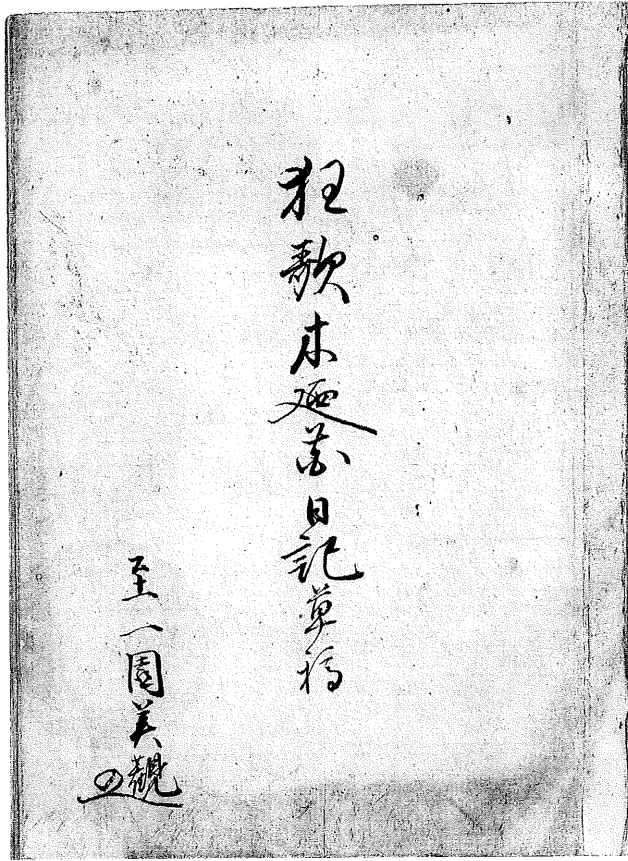 狂歌木廼日記草稿
至一園美觀